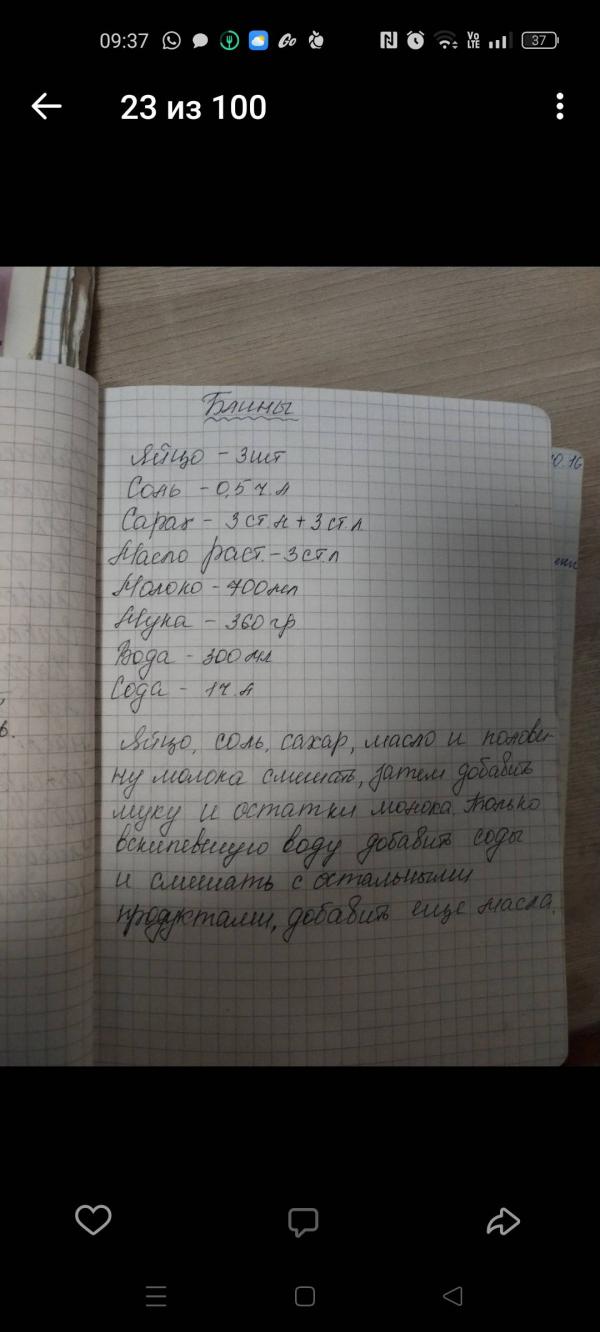 09:37
Vo
LTE
37
23 из 100
Блины
Яйцо - 3шт
Соль - 0,5 ч.л
Сарах - 3 ст.л + 3 ст.л
Масло раст. - 3 ст.л
Молоко - 700мл
Мука - 360 гр
Вода - 300 мл
Сода - 1 ч.л
Яйцо, соль, сахар, масло и полови-
ну молока смешать, затем добавить
муку и остатки молока. Только
вскипевшую воду добавить соды
и смешать с остальными
продуктами, добавить еще масла.
0.16
в.